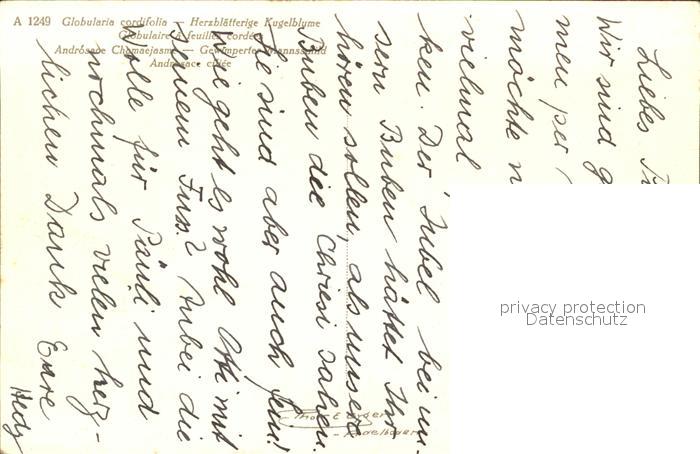 A 1249 Globularia cordifolia — Herzblätterige Kugelblume
Globulaire à feuilles cordées
Andrósace Chamaejasme — Gewimperter Mannsschild
Androsace ciliée
Liebes
Wir sind
men per
möchte
vielmal
ken. Der Jubel bei un-
sern Buben hättet Ihr
hören sollen, als unsere
Buben die Chriesi sahen.
Sie sind aber auch fein!
Wie geht es wohl Otti mit
seinem Fuss? Anbei die
Wolle für Päuli und
nochmals vielen herz-
lichen Dank Eure
Hedy
privacy protection
Datenschutz
Photo E. Gyger
Adelboden